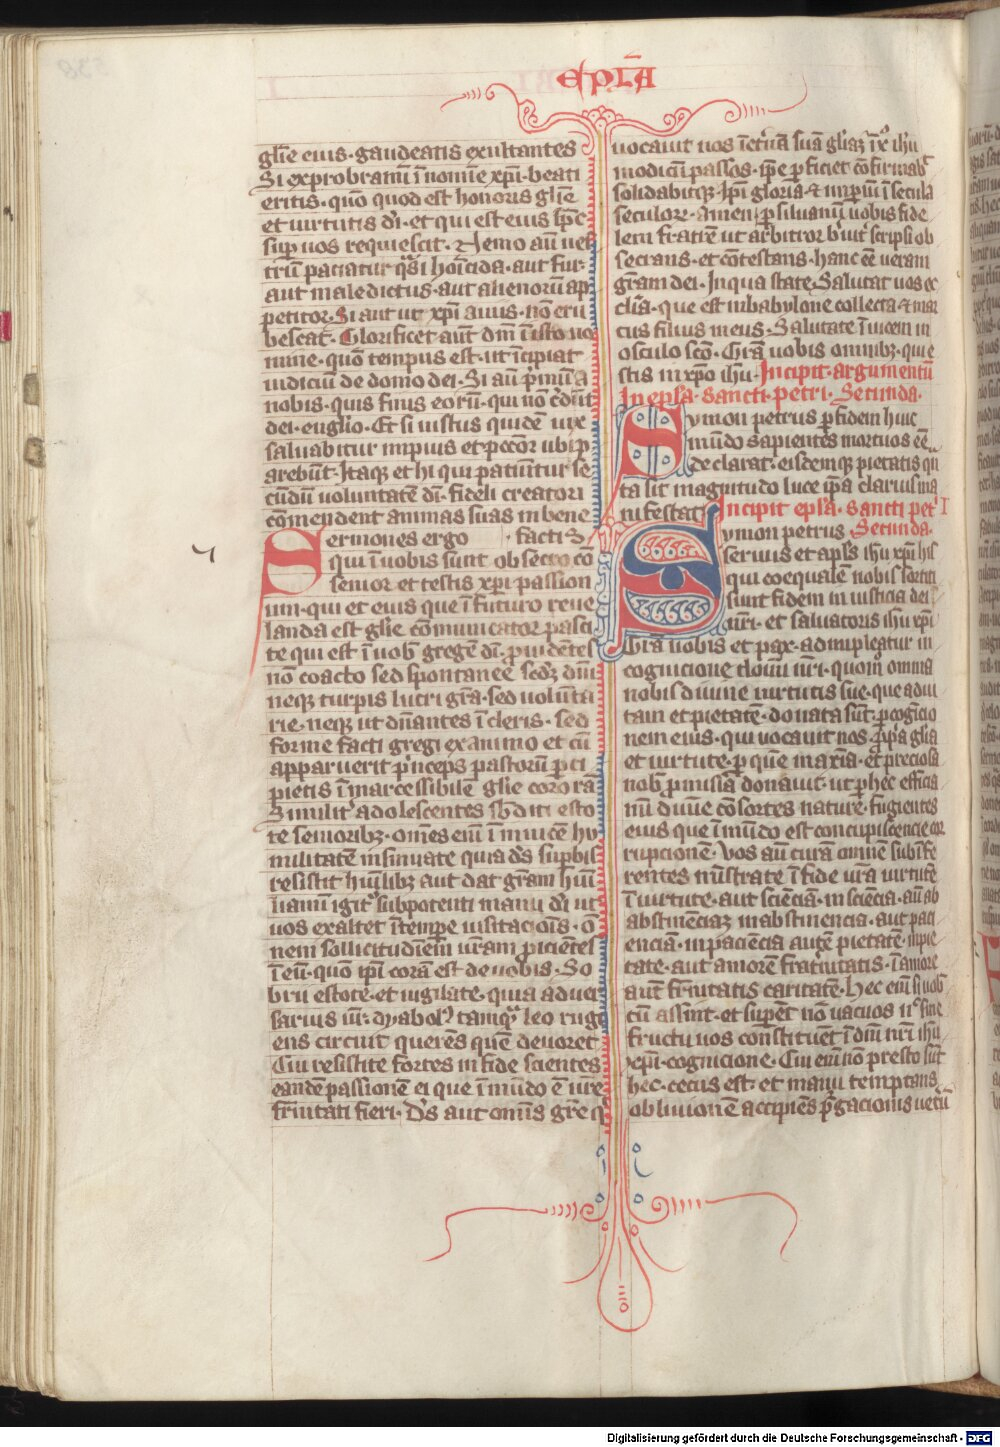 epl̄a
gl̄ie eius · gaudeatis exultantes
Si exprobramī ī nomīe xp̄i · beati
eritis · quō quod est honoris gl̄ie
et uirtutis dī · et qui est eius sp̄c
sup uos requiescit · Nemo aūt ues
trū paciatur qͣsi hoīcida · aut fur
aut maledictus · aut alienorū ap
petitor · Si aut ut xp̄i anus · nō eru
bescat · Glorificet aūt dm̄ ī isto no
mine · quō tempus est · ut īcipiat
iudiciū de domo dei · Si aū pͥmū a
nobis · quis finis eorū · qui nō c̄dūt
dei · eugl̄io · Et si iustus quidē uix
saluabitur impius et pcc̄or ubi p
arebūt · Itaqꝫ et hi qui patiūtur se
cūdū uoluntatē dī · fideli creatori
cōmendent animas suas in bene
Seniores ergo · factis
qui ī uobis sunt obsecro cō
senior et testis xp̄i passion
um · qui et eius que ī futuro reue
landa est gl̄ie cōmunicator pasci
te qui est ī uob̄ gregē dī · prouidētes
nō coacto sed spontanee scd̄ꝫ dm̄
neqꝫ turpis lucri gr̄a · sed uolūta
rie · neqꝫ ut dn̄antes ī cleris · sed
forme facti gregi ex animo et cū
apparuerit pͥnceps pastorū pci
pietis īmarcessibilē gl̄ie coronā
Similit͛ adolescentes sb̄diti esto
te senioribꝫ · om̄es eī īnuicē hu
militatē insinuate quia d̄s supbis
resistit huīlibꝫ aut dat gr̄am huī
liamī igit͛ sub potenti manu dī ut
uos exaltet ī tempe uisitac̄ois · ō
nem sollicitudīem ur̄am proicietes
ī eū · quō ip̄i cora est de uobis · So
brii estote · et uigilate · quia aduer
sarius ūr dyabolꝰ tamqͣ leo rugi
ens circuit querēs quē deuoret
Cui resistite fortes in fide scientes
eandē passionē ei que ī mūdo ē ur̄e
fr̄nitati fieri · D̄s aut om̄is gr̄e q
uocauit uos ī et͛nā suā gl̄iaꝫ ī xͦ ihu
modicū passos · ip̄e pficiet cōfirmab
solidabitqꝫ · Ip̄i gloria · et impiū ī secula
seculoꝝ · Amen p siluanū uobis fide
lem fratrē ut arbitror b͛uit͛ scripsi ob
secrans · et cōtestans · hanc eē ueram
gr̄am dei · In qua state · Salutat uos ec
cl̄ia · que est in babylone collecta · et mar
cus filius meus · Salutate īuicem in
osculo sc̄o · Gr̄a uobis omnibꝫ · qui e
stis in xp̄o ihu · Incipit · argumentū
In epl̄a · sancti · petri · Secunda ·
Symon petrus p fidem huic
mūdo sapientes mortuos eē
declarat · eisdemqꝫ pietatis qn
ta sit magnitudo luce ip̄a clariusīma
nifestat · Incipit epl̄a · sancti pet͛
Symon petrus Secunda ·
seruus et apl̄s ihu xp̄i his
qui coequalē nobis sortiti
sunt fidem in iusticia dei
n̄ri · et saluatoris ihu xp̄i
Gr̄a uobis et pax · adimpleatur in
cognicione domī n̄ri · quom̄ omnia
nobis diuine uirtutis sue · que ad ui
tam et pietatē · donata sūt · p cogīcio
nem eius · qui uocauit nos · pp̄a gl̄ia
et uirtute · p quē maxīa · et preciosa
nob̄ pmissa donauit · ut p hec effīcia
mī diuīe cōsortes nature · fugientes
eius que ī mūdo est concupiscencie cor
rupcionē · Vos aūt curā omnē subīfe
rentes mīstrate ī fide ur̄a uirtutē
ī uirtute · aut scīēciā · in scīēcia · aūt ab
abstinēciaꝫ in abstinencia · aut paci
enciā · in paciēcia autē pietatē · in pie
tate · aut amorē frat͛nitatis · ī amore
aūt fr̄nitatis caritatē · Hec eī si uob̄
cū assint · et supēt nō uacuos n̄ͨ sine
fructu uos constituēt ī dm̄ nr̄i ihu
xp̄i · cognicione · Cui eī nō presto sūt
hec · cecus est · et manu temptans
obliuionē accipiēs pͥgacionis uet͛ū
Digitalisierung gefördert durch die Deutsche Forschungsgemeinschaft - DFG